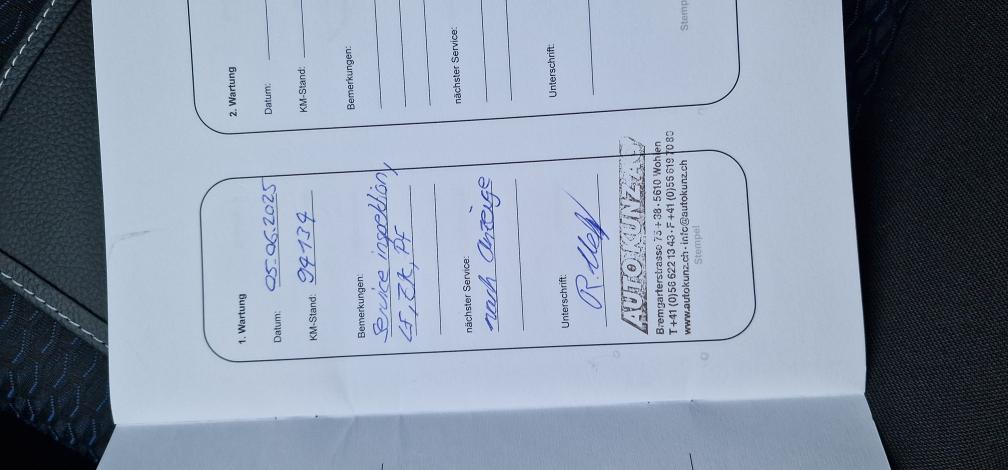 1. Wartung
Datum: 05.06.2025
KM-Stand: 94134
Bemerkungen:
Service inspektion,
nächster Service:
nach Anzeige
Unterschrift:
AUTO KUNZ AG
Bremgarterstrasse 75 + 38 · 5610 Wohlen
T +41 (0)56 622 13 43 · F +41 (0)56 619 70 80
www.autokunz.ch · info@autokunz.ch
Stempel
2. Wartung
Datum:
KM-Stand:
Bemerkungen:
nächster Service:
Unterschrift:
Stemp